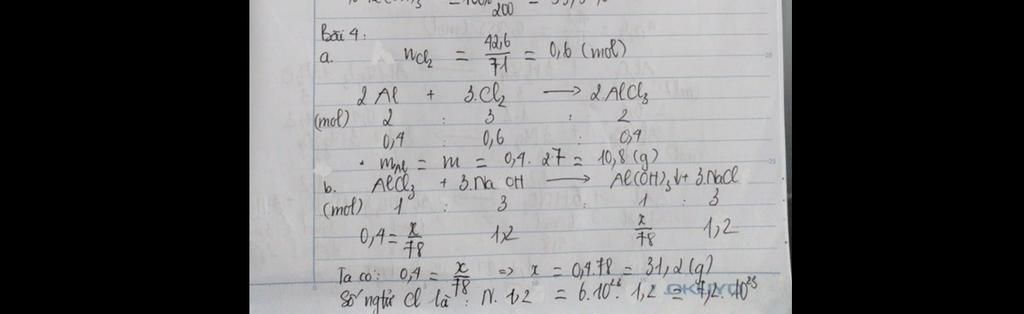 200
Bài 4:
a. nCl₂ = 42,6/71 = 0,6 (mol)
2 Al + 3.Cl₂ → 2AlCl₃
(mol) 2 : 3 : 2
0,4 : 0,6 : 0,4
• mAl = m = 0,4. 27 = 10,8 (g)
b. AlCl₃ + 3.NaOH → Al(OH)₃↓ + 3.NaCl
(mol) 1 : 3 : 1 : 3
0,4 = x/78 1,2 x/78 1,2
Ta có: 0,4 = x/78 => x = 0,4.78 = 31,2 (g)
Số ngtử Cl là : N. 1,2 = 6.10²³. 1,2 = 7,2. 10²³